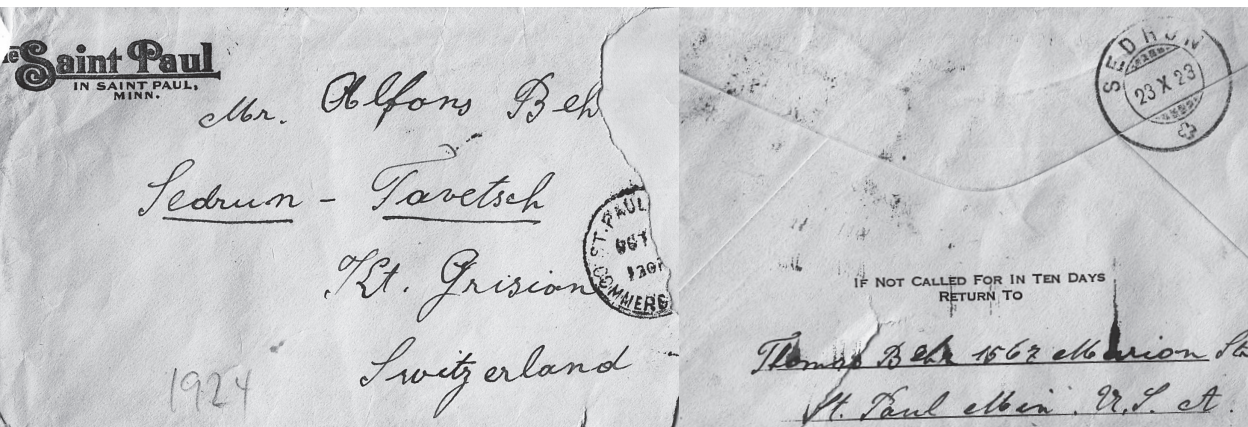 Saint Paul
IN SAINT PAUL,
MINN.
Mr. Alfons Beh
Sedrun - Tavetsch
Kt. Grision
Switzerland
1924
ST. PAUL
OCT
COMMERC
SEDRUN
23 X 23
IF NOT CALLED FOR IN TEN DAYS
RETURN TO
Thomas Behr 1567 Marion St
St. Paul Min. U.S. A.